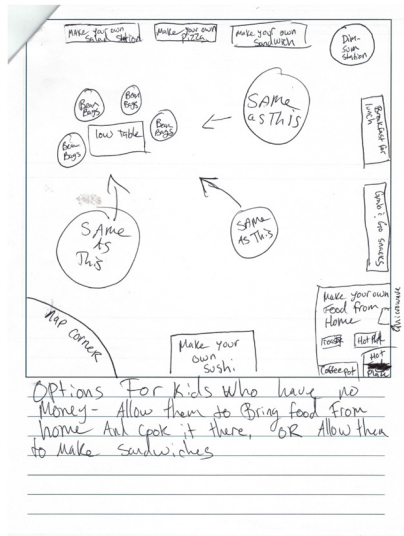 MAKE YOUR OWN
Salad Station
Make your own
Pizza
Make your own
Sandwich
Dim-
Sum
Station
Bean
Bags
Bean
Bags
Bean
Bags
Bean
Bags
low Table
SAMe
as This
Breakfast for
lunch
Grab & Go snacks
SAMe
As
This
SAMe
AS This
Make your own
Food from
Home
microwave
Toaster
Hot Pot
Coffee pot
Hot
Plate
Nap Corner
Make Your
own
Sushi
Options For Kids Who have no
Money- Allow them to Bring food From
home And Cook it there, OR Allow them
to Make Sandwiches